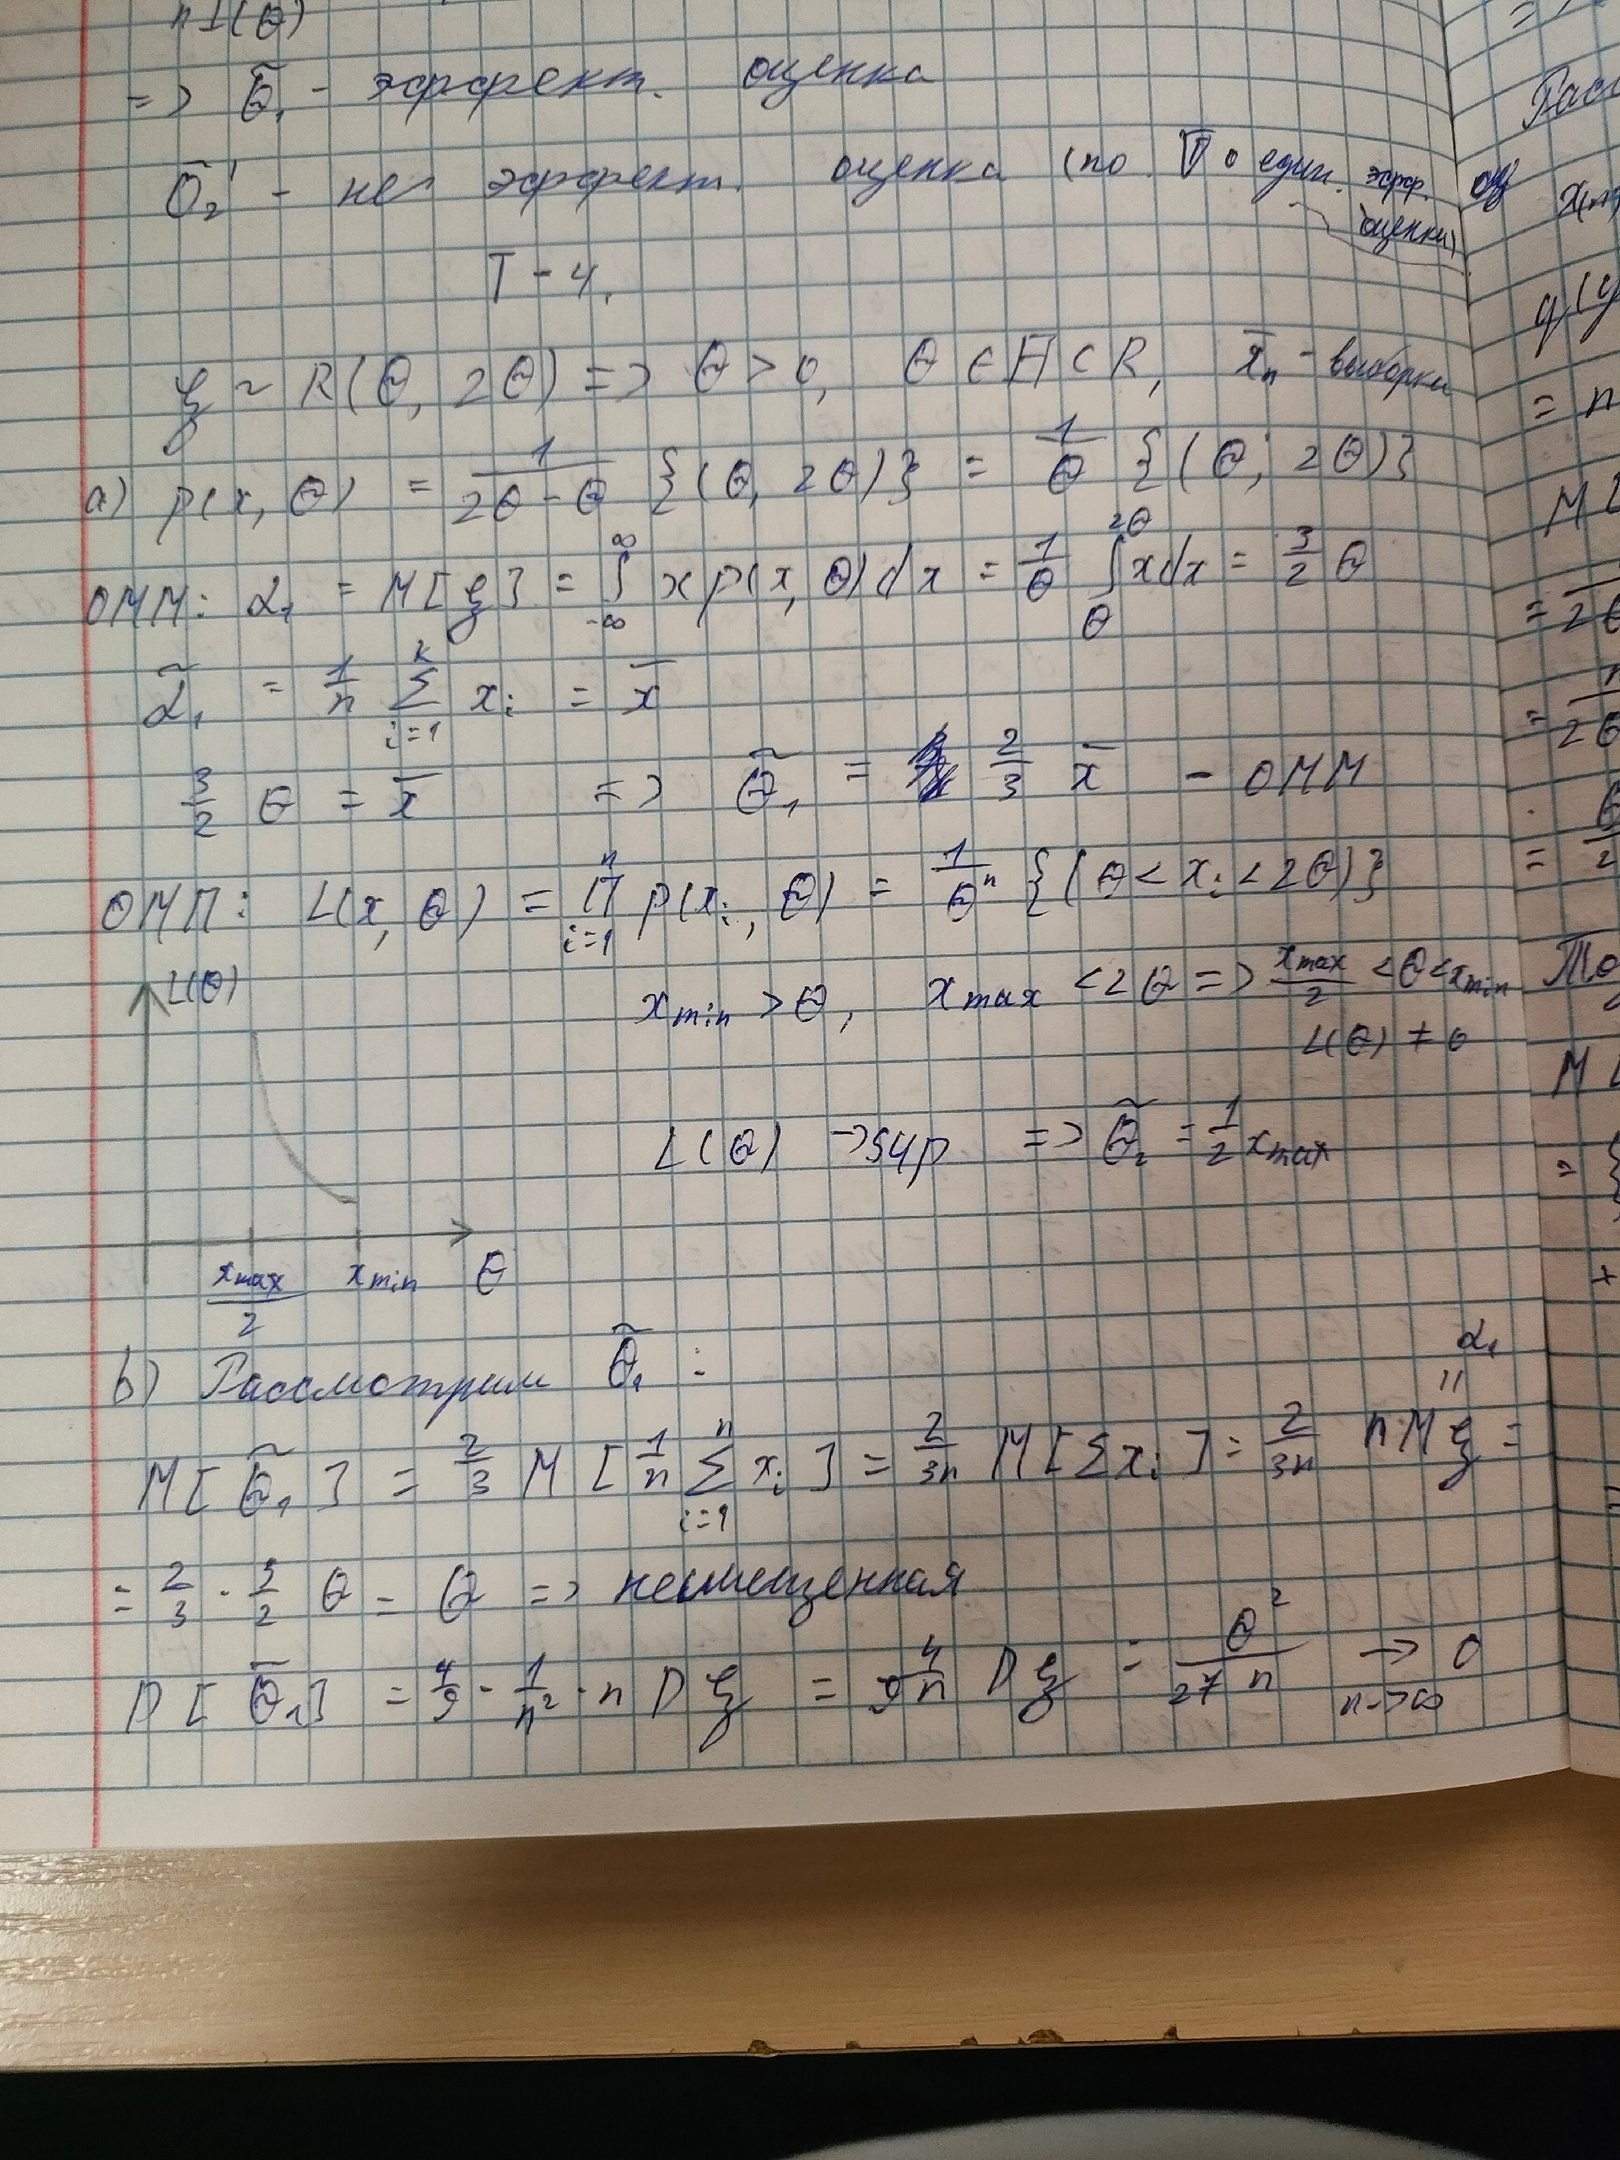 n I(θ)
=> θ̃₁ - эффект. оценка
θ̃₂' - не эффект. оценка (по T о един. эфф. оценки)
T-4.
ξ ~ R(θ, 2θ) => θ > 0, θ ∈ H ⊂ R, x̄ₙ - выборка
a) p(x, θ) = 1/(2θ - θ) {(θ, 2θ)} = 1/θ {(θ; 2θ)}
ОММ: α₁ = M[ξ] = ∫_{-∞}^{∞} x p(x, θ) dx = 1/θ ∫_θ^{2θ} x dx = 3/2 θ
α̃₁ = 1/n Σ_{i=1}^{k} xᵢ = x̄
3/2 θ = x̄ => θ̃₁ = 2/3 x̄ - ОММ
ОМП: L(x, θ) = ∏_{i=1}^{n} p(xᵢ, θ) = 1/θⁿ {(θ < xᵢ < 2θ)}
L(θ)
x_min > θ, x_max < 2θ => x_max/2 < θ < x_min
L(θ) ≠ 0
L(θ) → sup => θ̃₂ = 1/2 x_max
x_max/2 x_min θ
b) Рассмотрим θ̃₁ :
α₁
||
M[θ̃₁] = 2/3 M[1/n Σ_{i=1}^{n} xᵢ] = 2/3n M[Σxᵢ] = 2/3n n Mξ =
= 2/3 · 3/2 θ = θ => несмещенная
D[θ̃₁] = 4/9 · 1/n² · n Dξ = 4/9n Dξ = θ²/27n → 0
n→∞